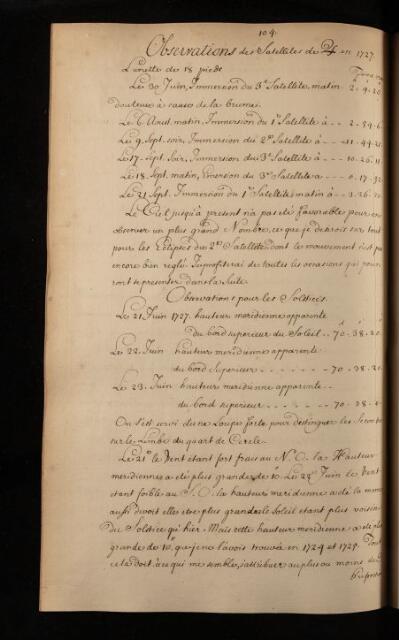 104.
Observations des Satellites de ♃ en 1727.
Lunette de 18 pieds
Le 30 Juin, Immersion du 3e Satellite, matin 2. 9. 20
douteuse à cause de la brume.
Le 6 Aout. matin, Immersion du 1er Satellite à - - 2. 54. 6
Le 9 Sept. soir, Immersion du 2e Satellite à - - 11. 44. 21
Le 17 Sept. Soir, Immersion du 3e Satellite à - - - 10. 26. 11
Le 18. Sept. matin, Emersion du 3e Satellite a - - - 0. 17. 32
Le 21 Sept. Immersion du 1er Satellite matin à - 3. 26. 20
Le Ciel jusqu'à present n'a pas été favorable pour en
observer un plus grand Nombre, ce que je devrois sur tout
pour les Eclipses du 2e Satellite, dont le mouvement n'est pas
encore bien reglé. Je profiterai de toutes les occasions qui
se presenter dans la Suite.
Observations pour les Solstices.
Le 21 Juin 1727. hauteur meridienne apparente
du bord superieur du Soleil - - 70. 38. 20
Le 22. Juin hauteur meridienne apparente
du bord Superieur - - - - - - 70 - 38. 20
Le 23. Juin hauteur meridienne apparente - -
du bord superieur - - - - - - 70. 38.
On s'est servi d'une Loupe forte pour distinguer les Secondes
sur le Limbe du quart de Cercle.
Le 21e le Vent etant fort frais au N. O. la Hauteur
meridienne a été plus grande de 10. Le 22e Juin le Vent
etant foible au S. O. la hauteur meridienne a été la meme
aussi devoit elle etre plus grande le Soleil etant plus voisin
du Solstice qu'hier. Mais cette hauteur meridienne a été plus
grande de 10" que je ne l'avois trouvée en 1724 et 1725. Tout
cela doit à ce qui me semble, s'attribuer au plus ou moins de